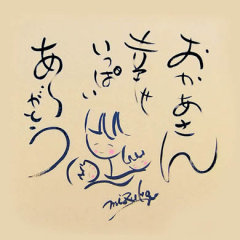 おかあさん
幸せ
いっぱい
ありがとう